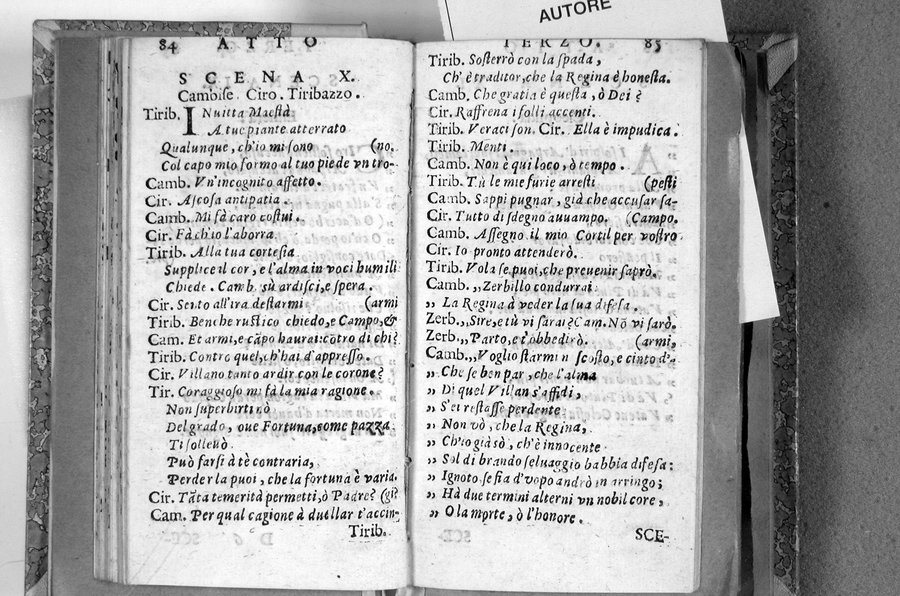 AUTORE
84 ATTO
SCENA X.
Cambise. Ciro. Tiribazzo.
Tirib. INuitta Maestà
A tue piante atterrato
Qualunque, ch'io mi sono (no.
Col capo mio formo al tuo piede vn tro-
Camb. Vn'incognito affetto.
Cir. Ascosa antipatia.
Camb. Mi fà caro costui.
Cir. Fà ch'io l'aborra.
Tirib. Alla tua cortesia
Supplice il cor, e l'alma in voci humili
Chiede. Camb. sù ardisci, e spera.
Cir. Sento all'ira destarmi (armi
Tirib. Benche rustico chiedo, e Campo, &
Cam. Et armi, e cãpo haurai: cõtro di chi?
Tirib. Contro quel, ch'hai d'appresso.
Cir. Villano tanto ardir con le corone?
Tir. Coraggioso mi fà la mia ragione.
Non superbirti nò
Del grado, oue Fortuna, come pazza
Ti solleuò
Può farsi à tè contraria,
Perder la puoi, che la fortuna è varia.
Cir. Tãta temerità permetti, ò Padre? (gi?
Cam. Per qual cagione à duellar t'accin-
Tirib.
TERZO. 85
Tirib. Sosterrò con la spada,
Ch'è traditor, che la Regina è honesta.
Camb. Che gratia è questa, ò Dei?
Cir. Raffrena i folli accenti.
Tirib. Veraci son. Cir. Ella è impudica.
Tirib. Menti.
Camb. Non è qui loco, ò tempo.
Tirib. Tù le mie furie arresti (pesti
Camb. Sappi pugnar, già che accusar sa-
Cir. Tutto di sdegno auuampo. (Campo.
Camb. Assegno il mio Cortil per vostro
Cir. Io pronto attenderò.
Tirib. Vola se puoi, che preuenir saprò.
Camb. „Zerbillo condurrai
„ La Regina à veder la sua difesa.
Zerb. „Sire, e tù vi sarai? Cam. Nõ vi sarò.
Zerb. „Parto, e t'obbedirò. (armi,
Camb. „Voglio starmi n scosto, e cinto d'-
„ Che se ben par, che l'alma
„ Di quel Villan s'affidi,
„ S'ei restasse perdente
„ Non vò, che la Regina,
„ Ch'io già sò, ch'è innocente
„ Sol di brando seluaggio habbia difesa:
„ Ignoto se fia d'vopo andrò in arringo;
„ Hà due termini alterni vn nobil core,
„ O la morte, ò l'honore.
SCE-